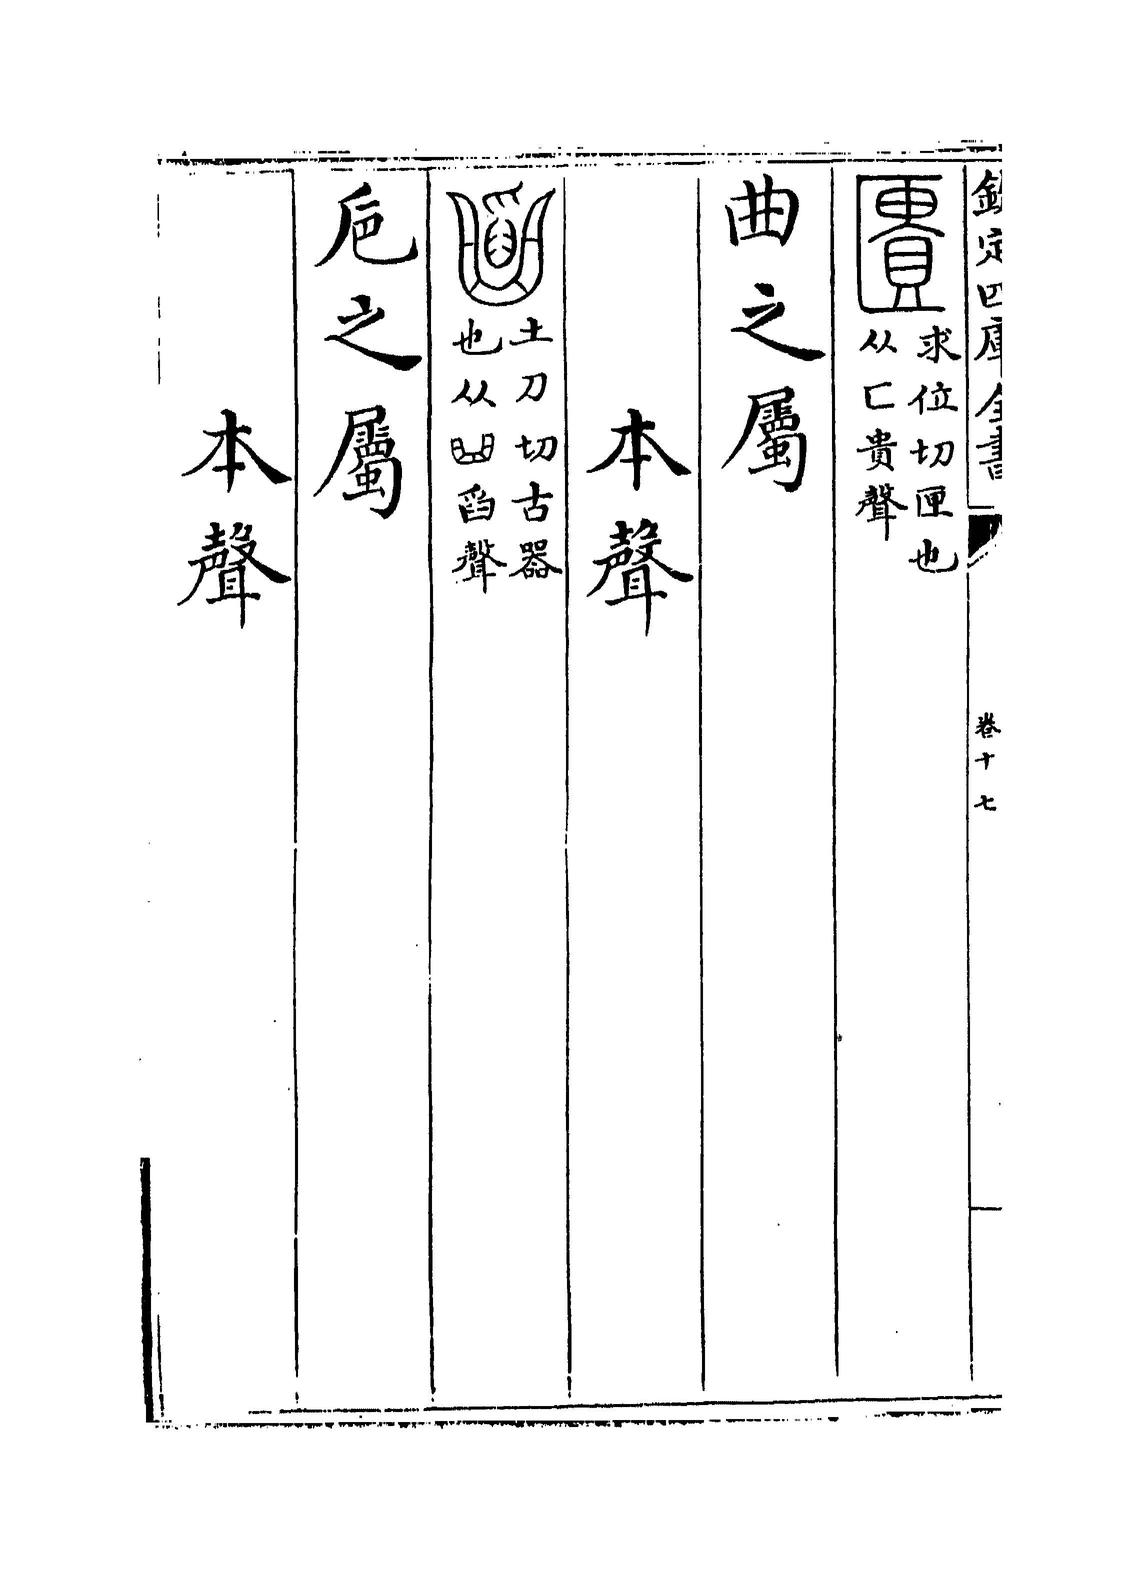 欽定四庫全書
卷十七
匱
求位切匣也
从匚貴聲
曲之屬
本聲
㽅
土刀切古器
也从曲舀聲
巵之屬
本聲